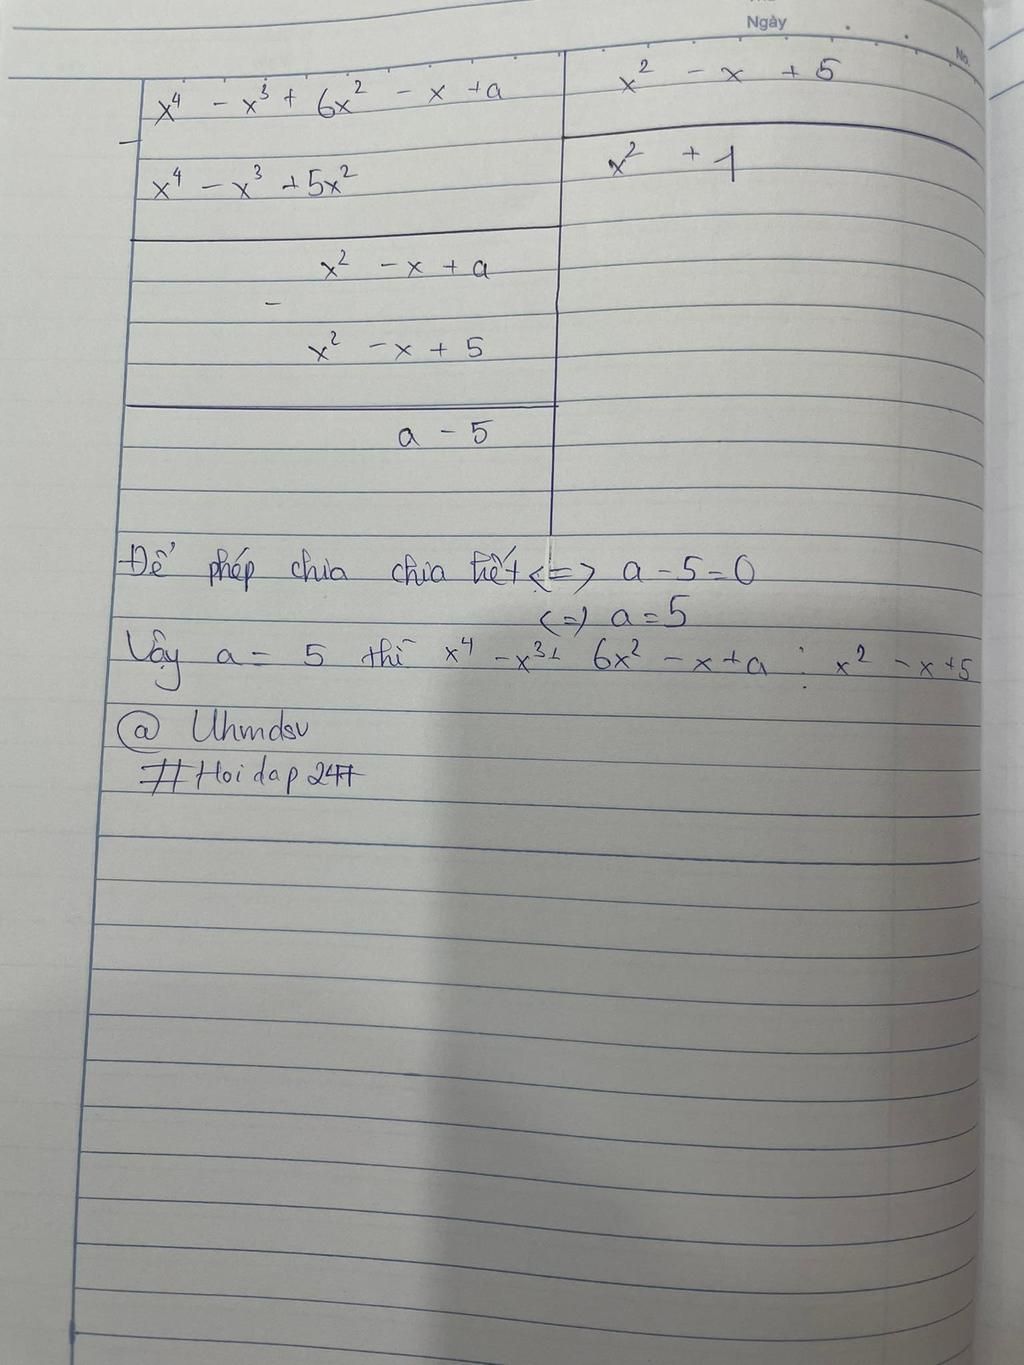 Ngày
No.
x⁴ - x³ + 6x² - x + a
x² - x + 5
x⁴ - x³ + 5x²
x² + 1
x² - x + a
-
x² - x + 5
a - 5
Để phép chia chia hết <=> a - 5 = 0
<=> a = 5
Vậy a = 5 thì x⁴ - x³ + 6x² - x + a ⋮ x² - x + 5
@ Uhmdsv
#Hoidap247